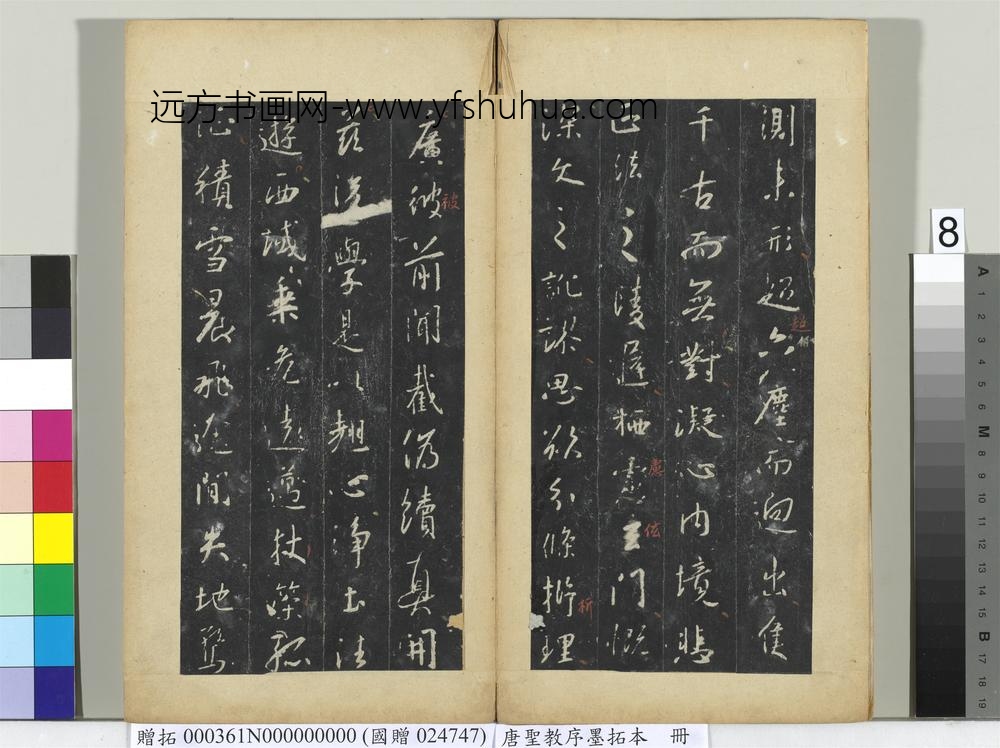 远方书画网-www.yfshuhua.com
測未形超六塵而迥出隻
千古而無對凝心內境悲
正法之陵遲栖慮玄門慨
深文之訛謬思欲分條析理
廣彼前聞截偽續真開
茲後學是以翹心淨土法
遊西域乘危遠邁杖策孤
征積雪晨飛途閒失地驚
超
慮
玄
析
被
8
A 1 2 3 4 5 6 M 8 9 10 11 12 13 14 15 B 17 18 19
贈拓 000361N000000000 (國贈 024747)
唐聖教序墨拓本 冊